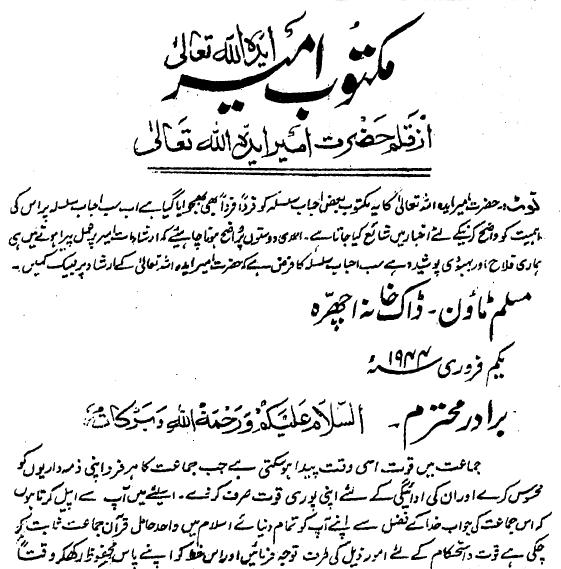 مکتوب امیر ایدہ اللہ تعالیٰ
از قلم حضرت امیر ایدہ اللہ تعالیٰ
نوٹ:۔ حضرت امیر ایدہ اللہ تعالیٰ کا یہ مکتوب بعض احباب سلسلہ کو فرداً فرداً بھی بھجوایا گیا ہے اب سب احباب سلسلہ پر اس کی
اہمیت کو واضح کرنیکے لئے اخبار میں شائع کیا جاتا ہے۔ احمدی دوستوں کو واضح ہونا چاہئیے کہ ارشادات امیر پر عمل پیرا ہونے میں ہی
ہماری فلاح اور بہبودی پوشیدہ ہے سب احباب سلسلہ کا فرض ہے کہ حضرت امیر ایدہ اللہ تعالیٰ کے ارشاد پر لبیک کہیں۔
مسلم ٹاؤن۔ ڈاک خانہ اچھرہ
یکم فروری ۱۹۴۴ء
برادر محترم۔ السلام علیکم ورحمۃ اللہ وبرکاتہ
جماعت میں قوت اسی وقت پیدا ہو سکتی ہے جب جماعت کا ہر فرد اپنی ذمہ داریوں کو
محسوس کرے اور ان کی ادائیگی کے لئے اپنی پوری قوت صرف کر دے۔ اسلئے میں آپ سے اپیل کرتا ہوں
کہ اس جماعت کی جو اب خدا کے فضل سے اپنے آپ کو تمام دنیائے اسلام میں واحد حامل قرآن جماعت ثابت کر
چکی ہے قوت و استحکام کے لئے امور ذیل کی طرف توجہ فرمائیں اور اس خط کو اپنے پاس محفوظ رکھکر وقتاً